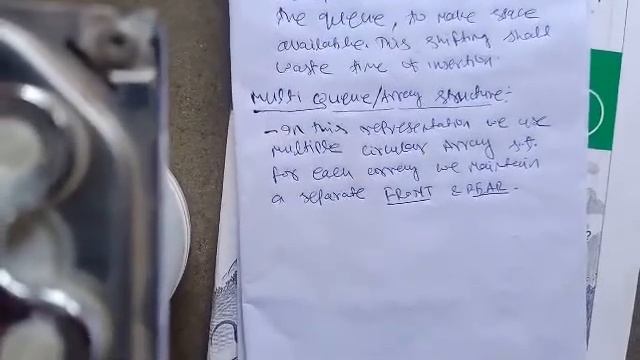 the queue, to make space
available. This shifting shall
waste time of insertion.
Multi Queue/Array structure:
- In this representation we use
multiple circular Array s.t.
for each array we maintain
a separate FRONT & REAR.